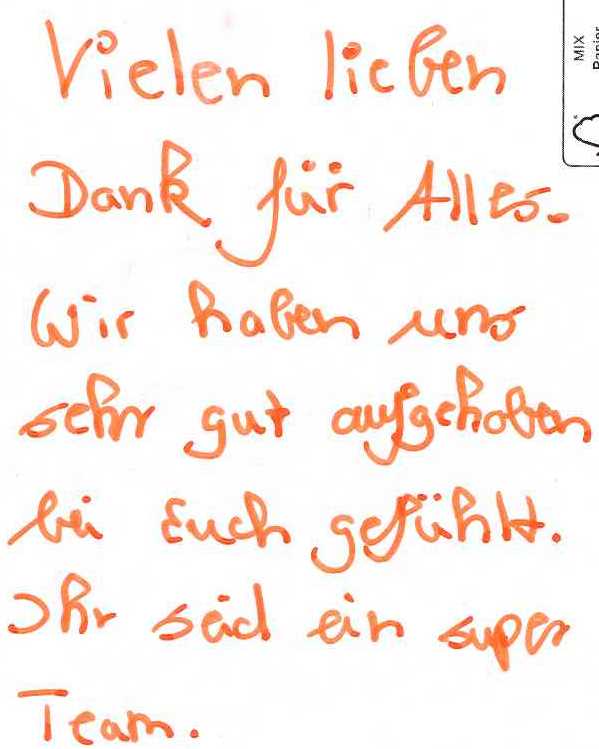 Vielen lieben
Dank für Alles.
Wir haben uns
sehr gut aufgehoben
bei Euch gefühlt.
Ihr seid ein super
Team.
MIX
Papier